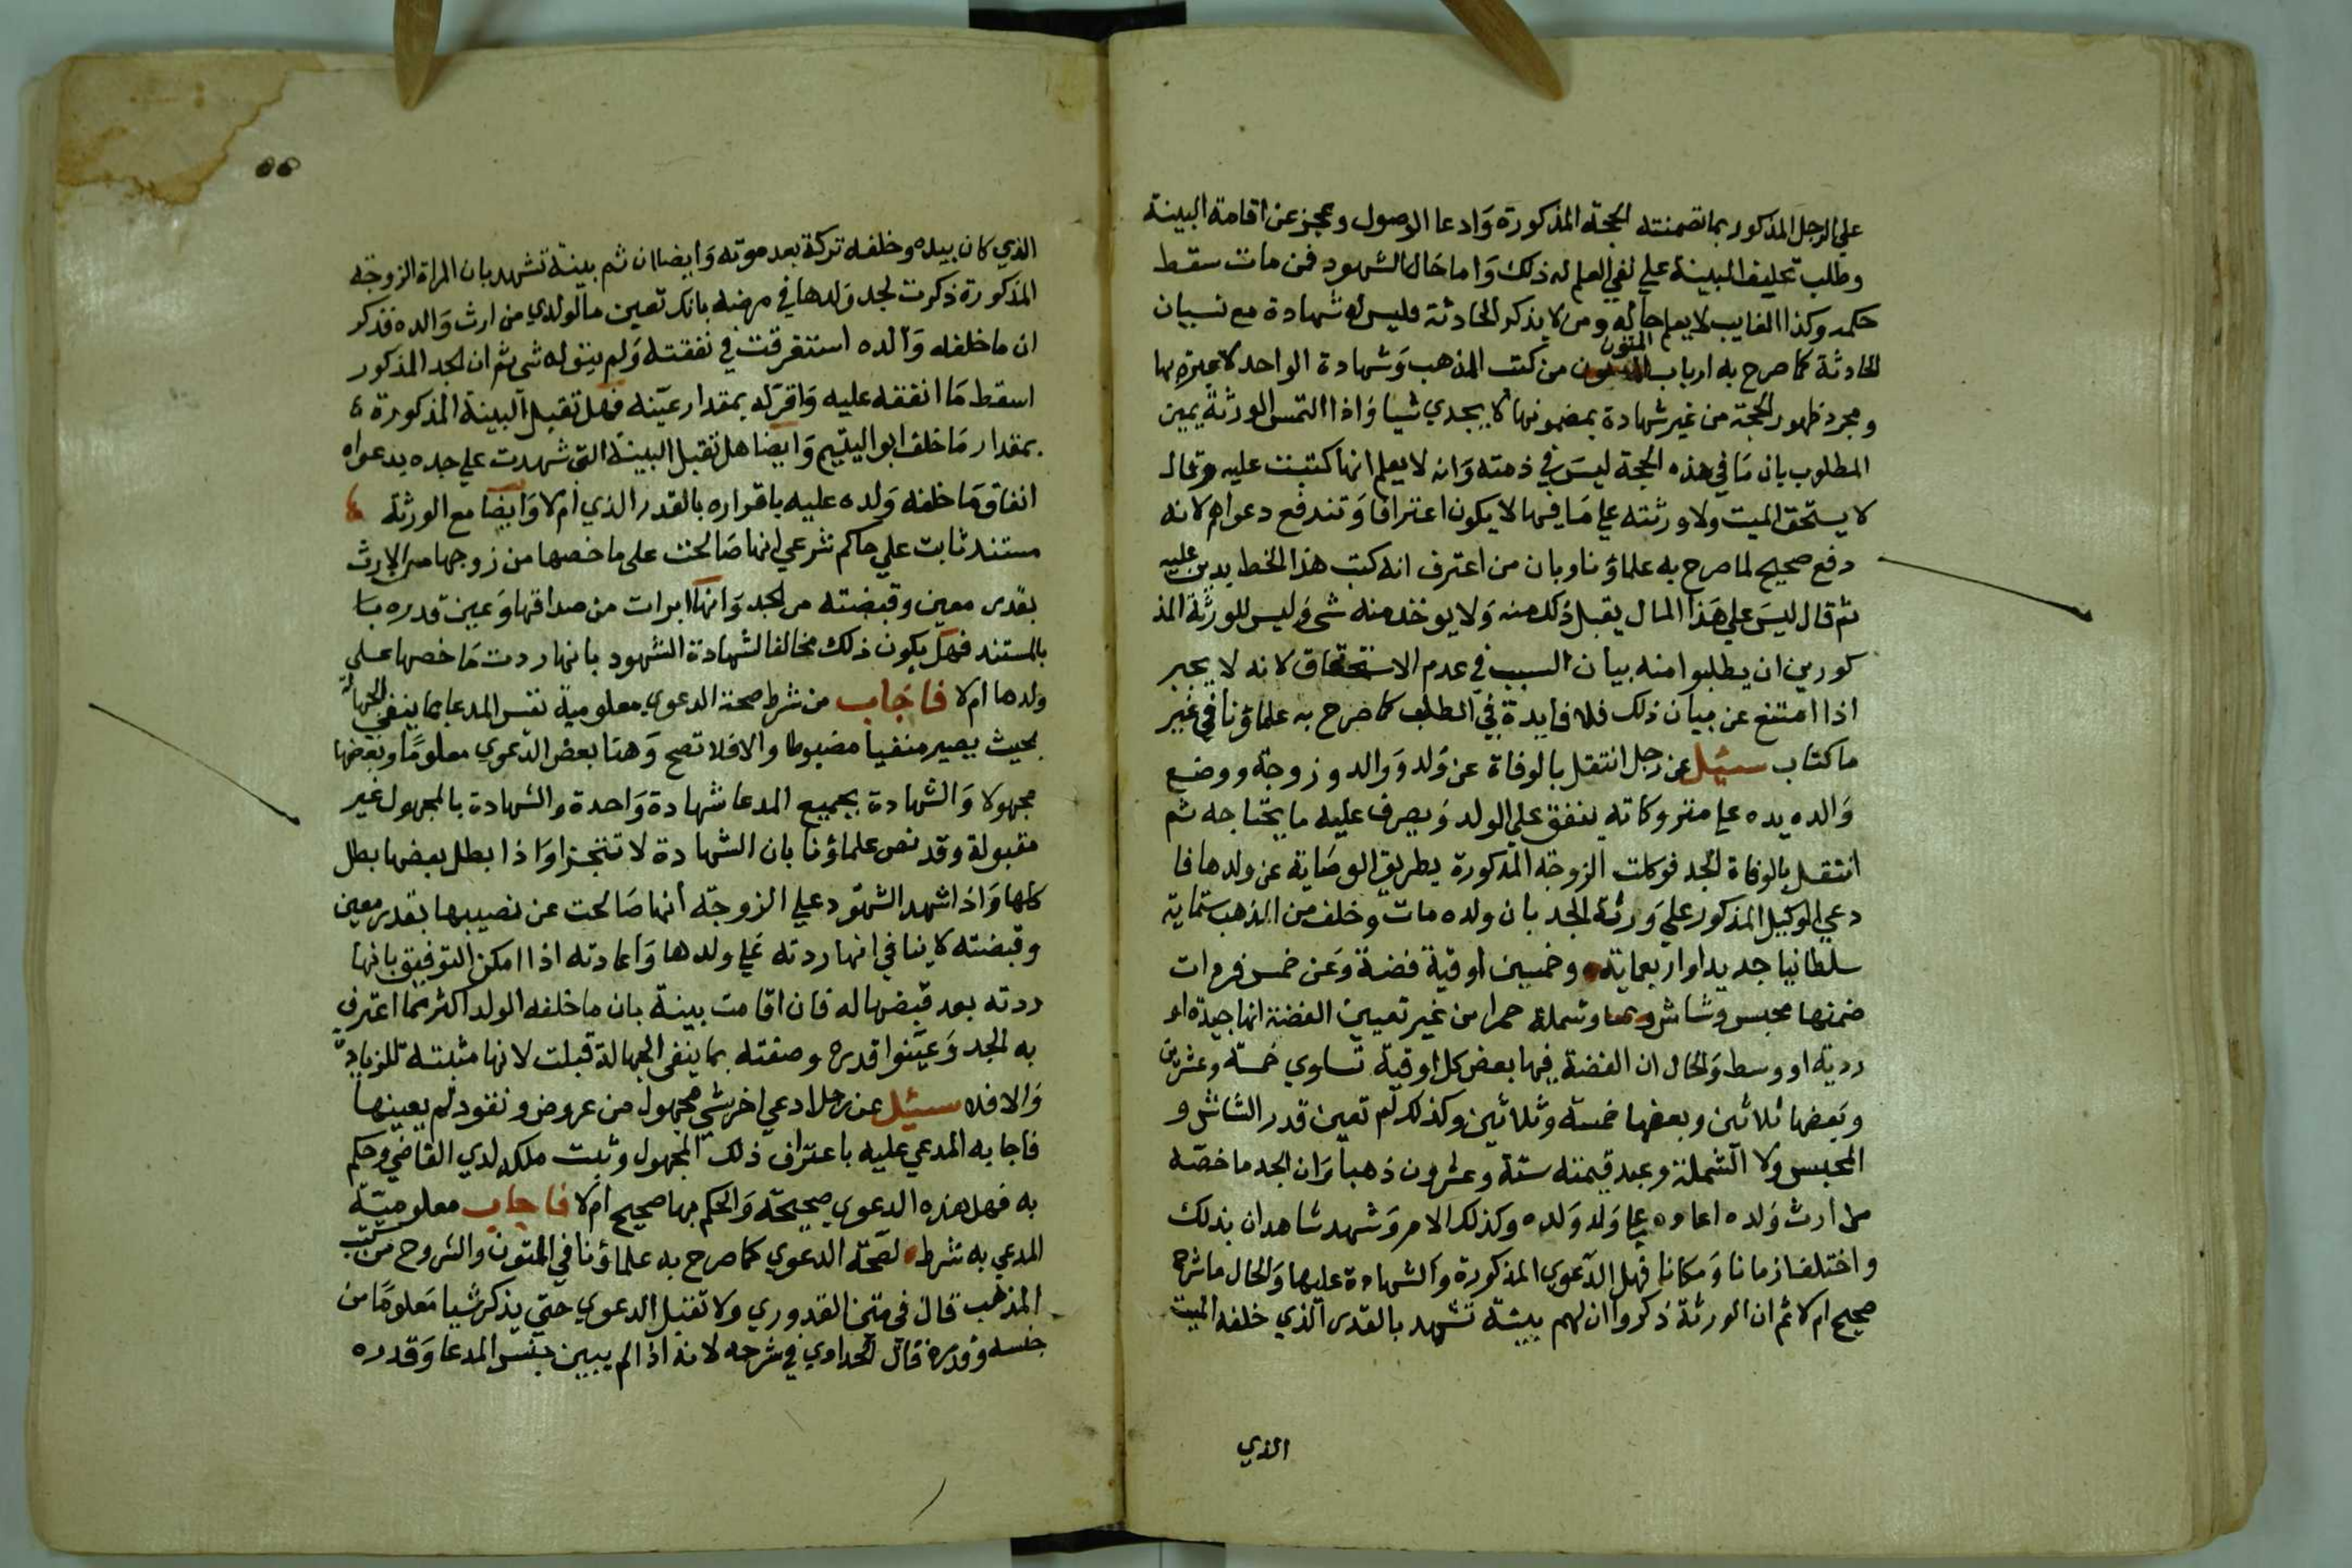 علي الرجل المذكور بما تضمنته الحجة المذكورة وَادعا الوصول وعجز عن اقامة البينة
وطلب تحليف البينة علي نفي العلم له ذلك وَاما حَال الشهود فمن مات سقط
حكمه وكذا الغايب لا يعلم حاله ومن لا يذكر الحادثة فليس له شهادة مع نسيان
الحادثة كما صرح به ارباب المتون من كتب المذهب وَشهادة الواحد لا عبرة بها
ومجرد ظهور الحجة من غير شهادة بمضمونها لا يجدي شيا وَاذا التمس الورثة يمين
المطلوب بان مَا في هذه الحجة ليسَ في ذمته وَانه لا يعلم انها كتبت عليه وقال
لا يستحق الميت ولا ورثته علي مَا فيها لا يكون اعترافا وَتندفع دعواهم لانه
دفع صحيح لما صرح به علماؤنا وبان من اعترف انه كتب هذا الخط بدين عليه
ثم قال ليسَ علي هَذا المال يقبل ذلك منه وَلا يوخذ منه شى وَليس للورثة المذ
كورين ان يطلبوا منه بيان السبب في عدم الاستحقاق لانه لا يجبر
اذا امتنع عن بيان ذلك فلا فايدة في الطلب كما صرح به علماؤنا في غير
ما كتاب سئيل عن رجل انتقل بالوفاة عن وَلد وَوالد وزوجة ووضع
وَالده يده علي متروكاته ينفق علي الولد وَيصرف عليه ما يحتاجه ثم
انتقل بالوفاة الجد فوكلت الزوجة المذكورة بطريق الوصَاية عن ولدها فا
دعي الوكيل المذكور علي وَرثة الجد بان ولده مات وخلف من الذهب ستماية
سلطانيا جديدا واربعماية وخمسين اوقية فضة وَعن خمس فرمات
ضمنها محبس وشاش وشملة حمرا من غير تعيين الفضة انها جيدة او
ردية او وسط وَالحال ان الفضة فيها بعض كل اوقية تساوي خمسة وعشرين
وبعضها ثلاثين وبعضها خمسة وثلاثين وكذلك لم تعين قدر الشاش و
المحبس ولا الشملة وعبد قيمته ستة وعشرون ذهبا وَان الجد ما خصّه
من ارث وَلده اعاده علي وَلد وَلده وكذلك الامر وَشهد شاهدان بذلك
واختلفا زمانا وَمكانا فهل الدعوي المذكورة وَالشهادة عليها وَالحال ما شرح
صحيح ام لا ثم ان الورثة ذكروا ان لهم بينة تشهد بالقدر الذي خلفه الميت
الذي
٥٥
الذي كان بيده وخلفه تركة بعد موته وَايضا ان ثم بينة تشهد بان المراة الزوجة
المذكورة ذكرت لجد وَلدها في مرضه بانك تعين ما لولدي من ارث وَالده فذكر
ان ما خلفه وَالده استغرقت في نفقته وَلم يبق له شى ثم ان الجد المذكور
اسقط مَا انفقه عليه وَاقرّ له بمقدار عيّنه فهل تقبل البينة المذكورة
بمقدار مَا خلف ابو اليتيم وَايضا هل تقبل البينة التى شهدت علي جده يدعواه
انفاق مَا خلفه وَلده عليه باقراره بالقدر الذي ام لا وَايضا مع الورثة
مستند ثابت علي حاكم شرعي انها صَالحت على ما خصها من زوجها من الارث
بقدر معين وقبضته من الجد وَانها ابرات من صداقها وَعين قدره بنا
بالمستند فهل يكون ذلك مخالفا لشهادة الشهود بانها ردت مَا خصها علي
ولدها ام لا فاجَاب من شرط صحة الدعوي معلومية نفس المدعا بما ينفي الجهالة
بحيث يصير منفيا مضبوطا والا فلا تصح وَهنا بعض الدعوي معلومًا وبعضها
مجهولا وَالشهادة بجميع المدعا شهادة وَاحدة والشهادة بالمجهول غير
مقبولة وقد نص علماؤنا بان الشهادة لا تتجزا وَاذا بطل بعضها بطل
كلها وَاذا شهد الشهود علي الزوجة انها صَالحت عن نصيبها بقدر معين
وقبضته لا ينافي انها ردته علي ولدها وَاعادته اذا امكن التوفيق بانها
ردته بعد قبضها له فان اقامت بينة بان ما خلفه الولد اكثر مما اعترف
به الجد وَعيّنوا قدره وصفته بما ينفى الجهالة قبلت لانها مثبتة للزيادة
وَالا فلا سئيل عن رجل ادعي اخر بشي مجهول من عروض ونقود لم يعينها
فاجابه المدعي عليه باعتراف ذلك المجهول وثبت ملكه لدي القاضي وحكم
به فهل هذه الدعوي صحيحة وَالحكم بها صحيح ام لا فاجاب معلوميّة
المدعي به شرط لصحّة الدعوي كما صرح به علماؤنا في المتون والشروح من كتب
المذهب قال في متن القدوري ولا تقبل الدعوي حتي يذكر شيا مَعلومًا من
جنسه وقدره قال الحدادي في شرحه لانه اذا لم يبين جنس المدعا وَقدره